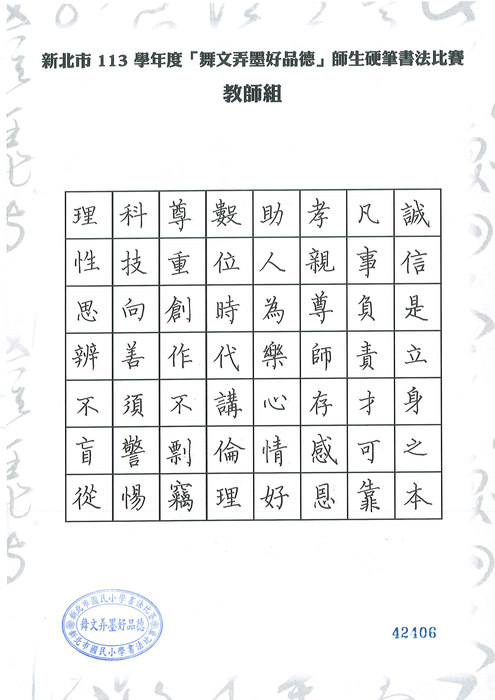 新北市 113 學年度「舞文弄墨好品德」師生硬筆書法比賽
教師組
誠信是立身之本
凡事負責才可靠
孝親尊師存感恩
助人為樂心情好
數位時代講倫理
尊重創作不剽竊
科技向善須警惕
理性思辨不盲從
新北市國民小學書法比賽
舞文弄墨好品德
新北市國民小學書法比賽
42106